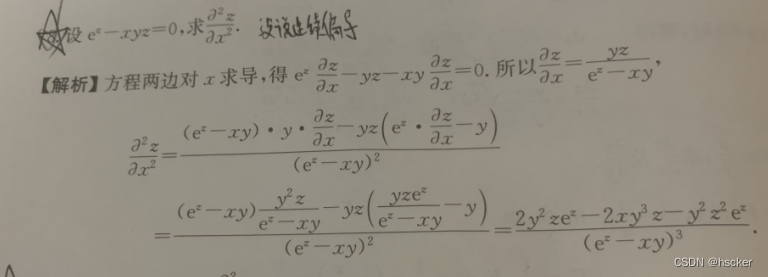 设 eᶻ-xyz=0,求∂²z/∂x². 没说连续偏导
【解析】方程两边对 x 求导,得 eᶻ ∂z/∂x-yz-xy ∂z/∂x=0. 所以∂z/∂x=yz/(eᶻ-xy),
∂²z/∂x²=((eᶻ-xy)·y·∂z/∂x-yz(eᶻ·∂z/∂x-y))/(eᶻ-xy)²
=((eᶻ-xy) y²z/(eᶻ-xy)-yz(yzeᶻ/(eᶻ-xy)-y))/(eᶻ-xy)²=(2y²zeᶻ-2xy³z-y²z²eᶻ)/(eᶻ-xy)³.
CSDN @hscker